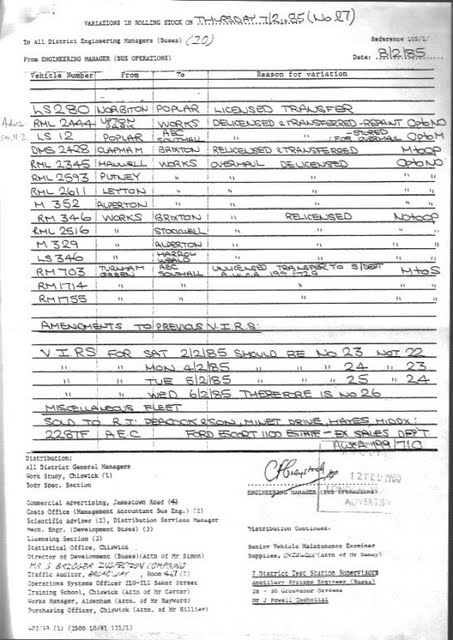 VARIATIONS IN ROLLING STOCK ON THURSDAY 7/2/85 (No 27)
To All District Engineering Managers (Buses) (20)
Reference 109/1/
From ENGINEERING MANAGER (BUS OPERATIONS)
Date: 8/2/85
Vehicle Number From To Reason for variation
LS 280 NORBITON POPLAR LICENSED TRANSFER
RML 2444 UPTON PARK WORKS DELICENSED & TRANSFERRED - REPAINT Opto NO
LS 12 POPLAR AEC SOUTHALL " " - STORED FOR OVERHAUL Opto M
DMS 2428 CLAPHAM BRIXTON RELICENSED & TRANSFERRED M to op
RML 2345 HANWELL WORKS OVERHAUL DELICENSED Opto NO
RML 2593 PUTNEY " " " "
RML 2611 LEYTON " " " "
M 352 ALPERTON " " " "
RM 346 WORKS BRIXTON " RELICENSED No to op
RML 2516 " STOCKWELL " " "
M 329 " ALPERTON " " "
LS 346 " HARROW WEALD " " "
RM 703 TURNHAM GREEN AEC SOUTHALL UNLICENSED TRANSFER TO S/DEPT M to S
A.W.C.A 199/729
RM 1714 " " " " "
RM 1755 " " " " "
AMENDMENTS TO PREVIOUS V.I.R.S:
V.I.R.S FOR SAT 2/2/85 SHOULD BE No 23 NOT 22
" " MON 4/2/85 " " " 24 " 23
" " TUE 5/2/85 " " " 25 " 24
" " WED 6/2/85 THEREFORE IS No 26
MISCELLANEOUS FLEET
SOLD TO R.J. PEACOCK & SON, MINET DRIVE, HAYES MIDDX:
2287F A.E.C FORD ESCORT 1100 ESTATE - EX SALES DEPT
AWCA 199/710
Distribution:
All District General Managers
Work Study, Chiswick (1)
Body Spec. Section
12 FEB
ENGINEERING MANAGER (BUS OPERATIONS)
ADVERTISI
Commercial Advertising, Jamestown Road (4)
Costs Office (Management Accountant Bus Eng.) (2)
Scientific Adviser (2), Distribution Services Manager
Mech. Engr. (Development Buses) (3)
Licensing Section (3)
Statistical Office, Chiswick
Director of Development (Buses) (Attn of Mr Simon)
MR S INSPECTION COMPOUND
Traffic Auditor, BROADWAY, Room
Operations Systems Officer 210-212 Baker Street
Training School, Chiswick (Attn of Mr Carter)
Works Manager, Aldenham (Attn. of Mr Hayward)
Purchasing Officer, Chiswick (Attn. of Mr Hillier)
Distribution Continued:
Senior Vehicle Maintenance Examiner
Supplies, CHISWICK (Attn of Mr
7 District Test Station Supervisors
Ancillary Systems Engineer (Buses)
28 - 30 Grosvenor Gardens
Mr J Powell Technical